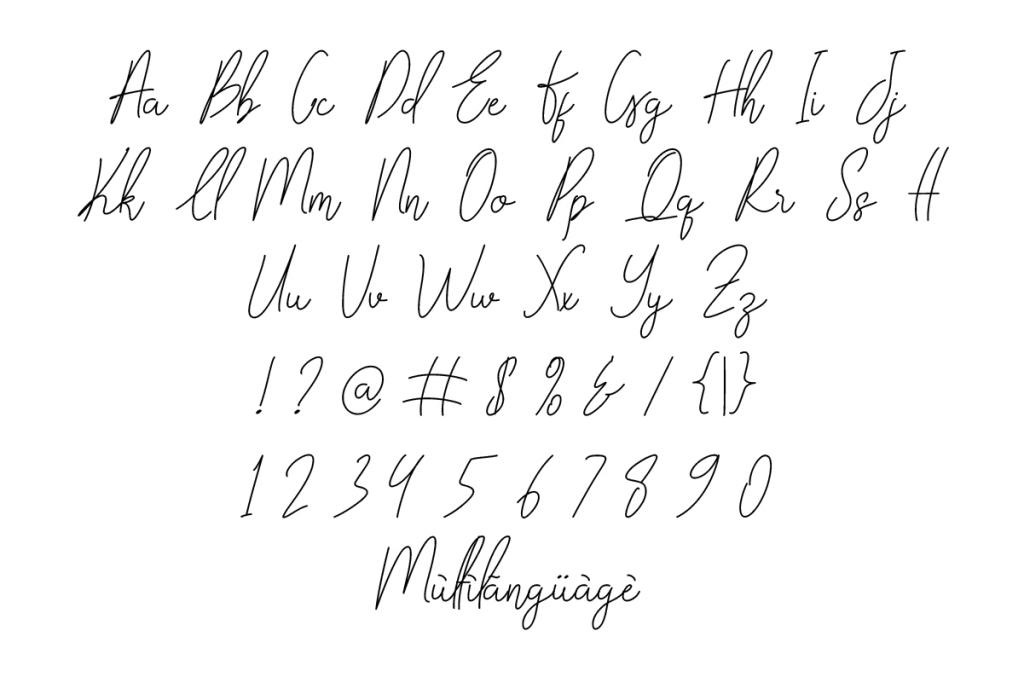 Aa Bb Cc Dd Ee Ff Gg Hh Ii Jj
Kk Ll Mm Nn Oo Pp Qq Rr Ss Tt
Uu Vv Ww Xx Yy Zz
! ? @ # $ % & / {|}
1 2 3 4 5 6 7 8 9 0
Mùltìlángüàgè